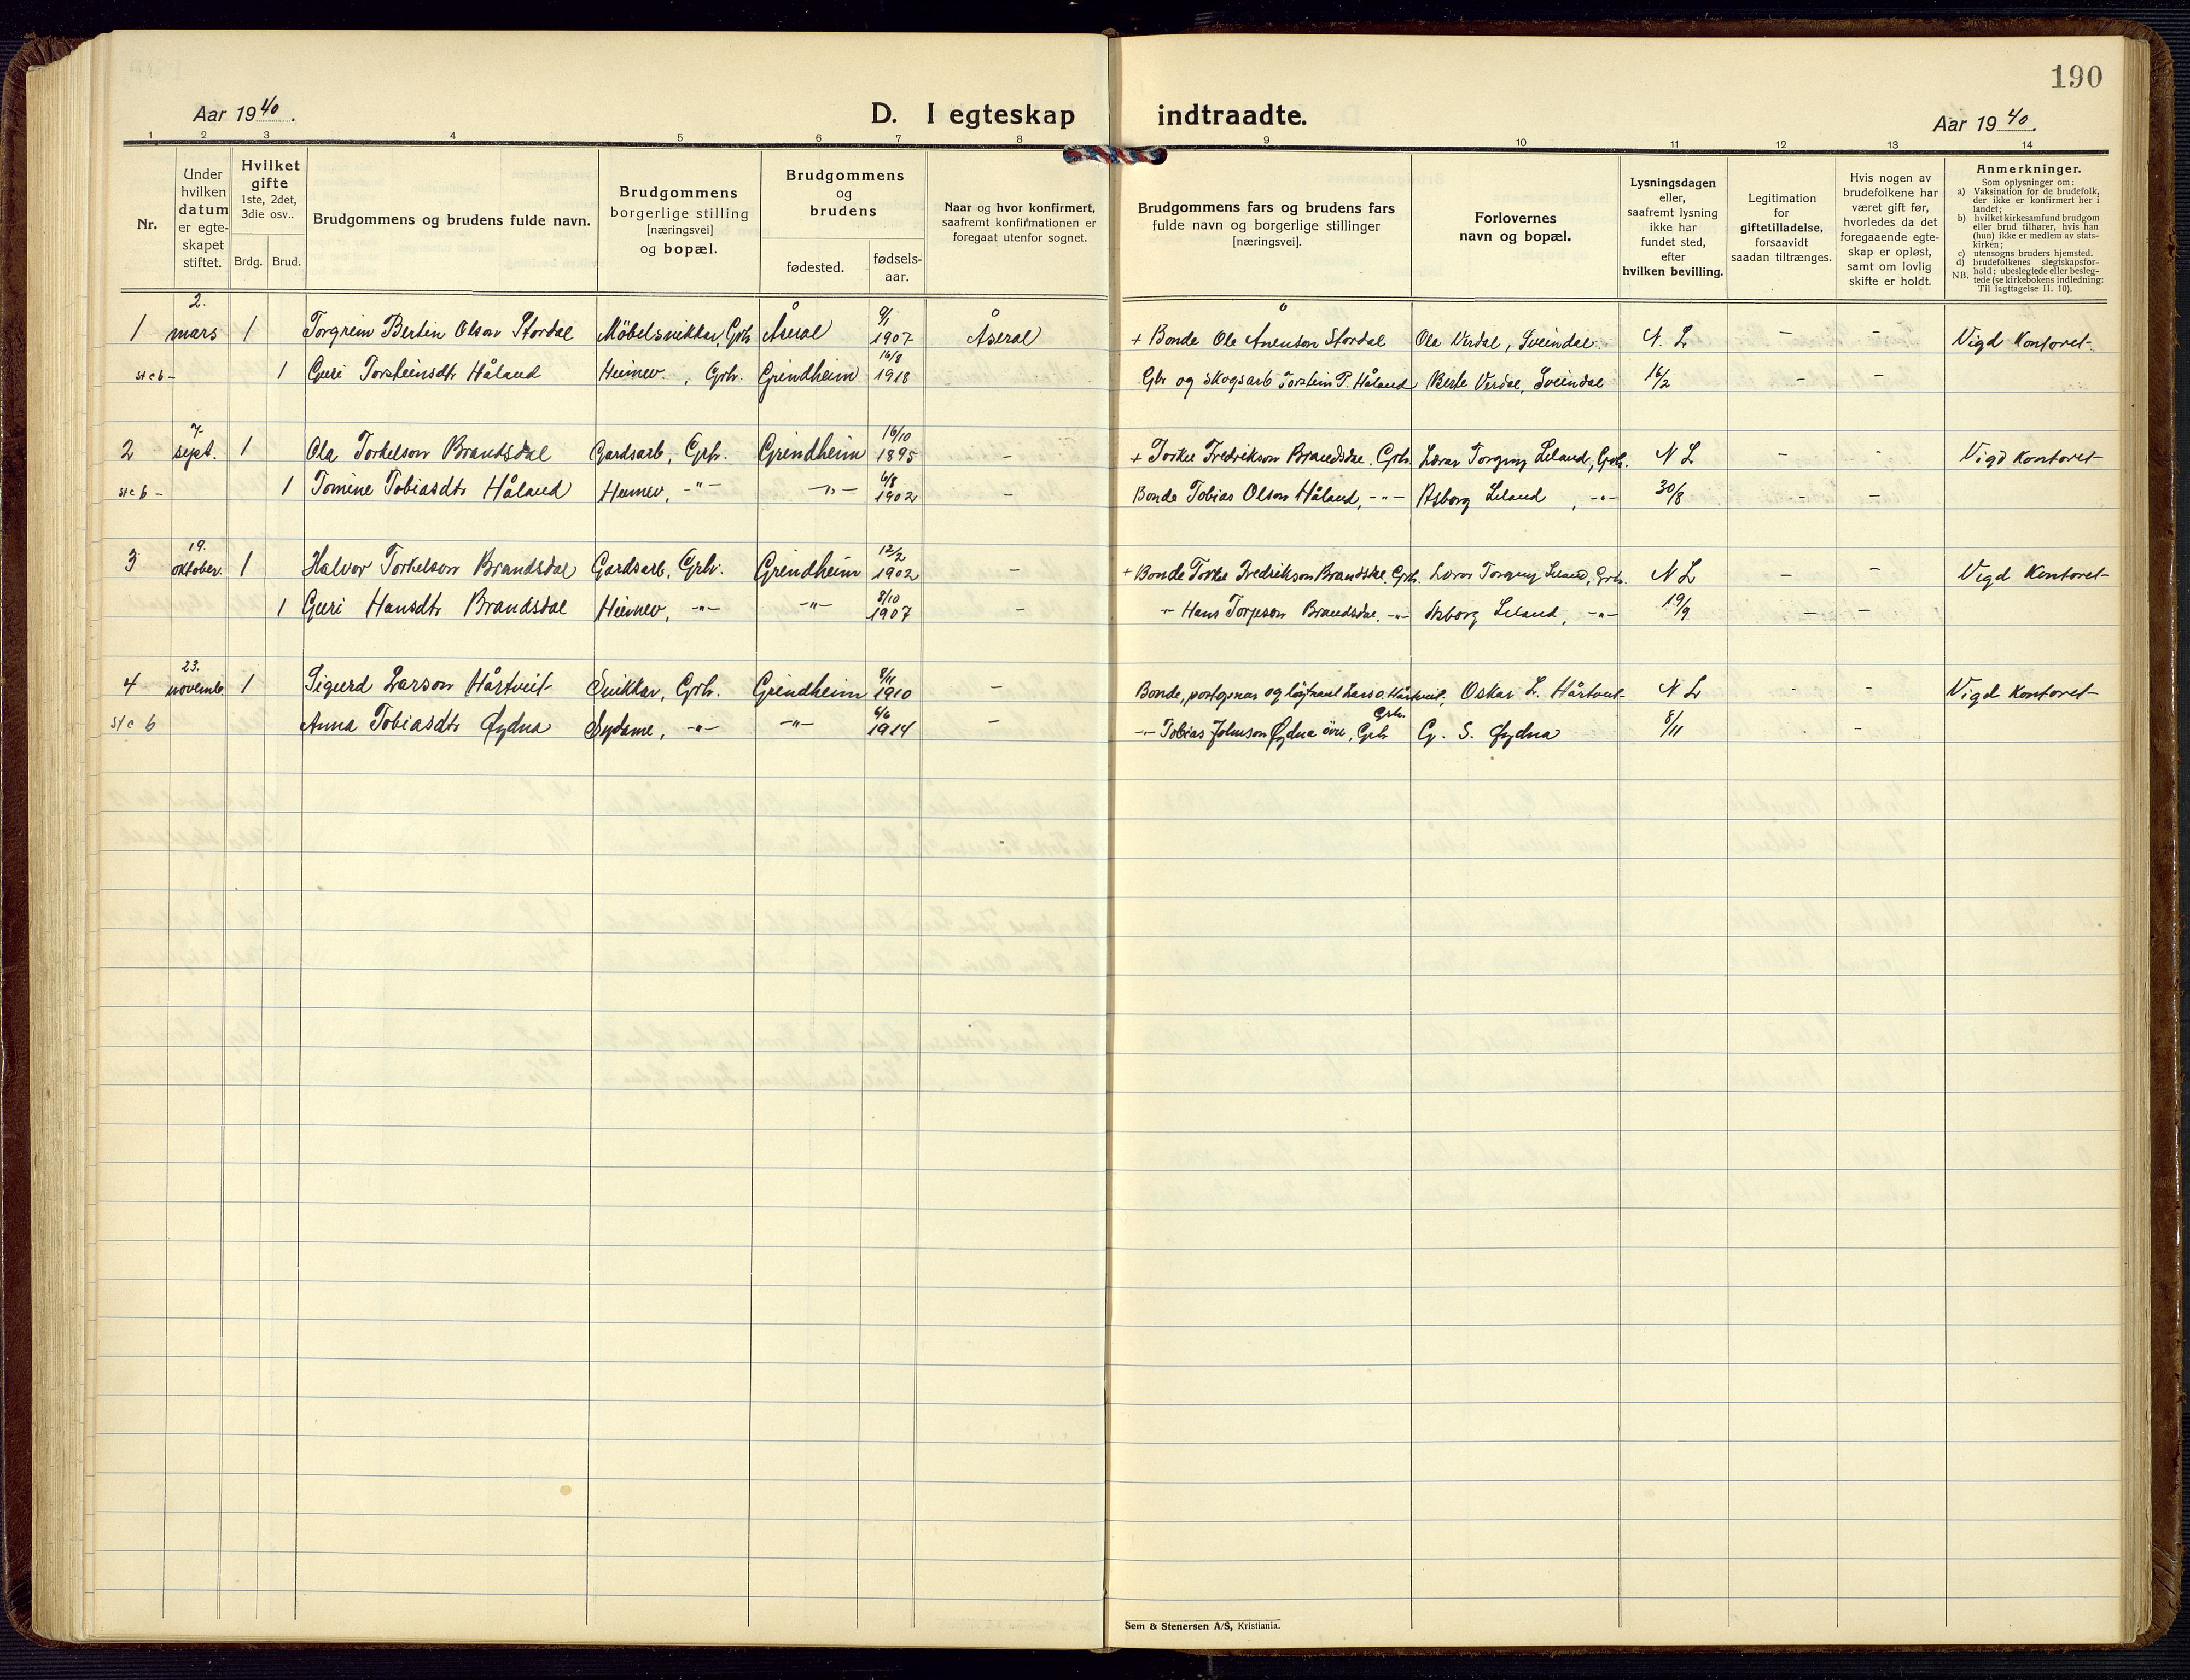 190
Aar 1940.
D. I egteskap indtraadte.
Aar 1940.
1 2 3 4 5 6 7 8 9 10 11 12 13 14
Nr.
Under hvilken datum er egte-skapet stiftet.
Hvilket gifte 1ste, 2det, 3die osv..
Brdg. Brud.
Brudgommens og brudens fulde navn.
Brudgommens borgerlige stilling [næringsvei] og bopæl.
Brudgommens og brudens
fødested. fødsels-aar.
Naar og hvor konfirmert, saafremt konfirmationen er foregaat utenfor sognet.
Brudgommens fars og brudens fars fulde navn og borgerlige stillinger [næringsvei].
Forlovernes navn og bopæl.
Lysningsdagen eller, saafremt lysning ikke har fundet sted, efter hvilken bevilling.
Legitimation for giftetilladelse, forsaavidt saadan tiltrænges.
Hvis nogen av brudefolkene har været gift før, hvorledes da det foregaaende egte-skap er opløst, samt om lovlig skifte er holdt.
Anmerkninger.
Som oplysninger om:
a) Vaksination for de brudefolk, der ikke er konfirmert her i landet;
b) hvilket kirkesamfund brudgom eller brud tilhører, hvis han (hun) ikke er medlem av stats-kirken;
c) utensogns bruders hjemsted.
d) brudefolkenes slegtskapsfor-hold: ubeslegtede eller besleg-tede (se kirkebokens indledning: Til iagttagelse II. 10).
NB.
1 2. mars 1 Torgrim Bertin Olson Stordal Möbelsnikkar, Grh. Åseral 9/1 1907 Åseral + Bonde Ole Ånenson Stordal Ola Verdal, Sveindal. N. L – – Vigd Kontoret-
st c b – 1 Guri Torsteinsdtr Håland Heimev., Grh. Grindheim 16/8 1918 Gbr og skogsarb Torstein P. Håland Berte Verdal, Sveindal 16/2 – –
2 7. sept. 1 Ola Torkelson Brandsdal Gardsarb, Grh. Grindheim 16/10 1895 – + Torkel Fredrikson Brandsdal. Grh. Lærar Torgny Leland, Grh. N L – – Vigd Kontoret-
st c b – 1 Tomine Tobiasdtr Håland Heimev, –"– –"– 6/8 1902 – Bonde Tobias Olson Håland, –"– Asborg Leland, –"– 30/8 – –
3 19. oktober. 1 Halvor Torkelson Brandsdal Gardsarb, Grh. Grindheim 12/2 1902 – + Bonde Torkel Fredrikson Brandsdal, Grh. Lærar Torgny Leland, Grh. N L – – Vigd Kontoret-
1 Guri Hansdtr Brandsdal Heimev, –"– –"– 8/10 1907 – –"– Hans Torjeson Brandsdal, –"– Asborg Leland, –"– 19/9 – –
4 23. novemb. 1 Sigurd Larson Hårtveit- Snikkar, Grh. Grindheim 8/11 1910 – Bonde, postopnar og løytnant Lars O. Hårtveit, Grh. Oskar L. Hårtveit- N L – – Vigd Kontoret-
st c b Anna Tobiasdtr Øydna Sydame, –"– –"– 6/6 1914 – –"– Tobias Johnson Øydna övre, Grh G. S. Øydna 8/11 –
Sem & Stenersen A/S, Kristiania.